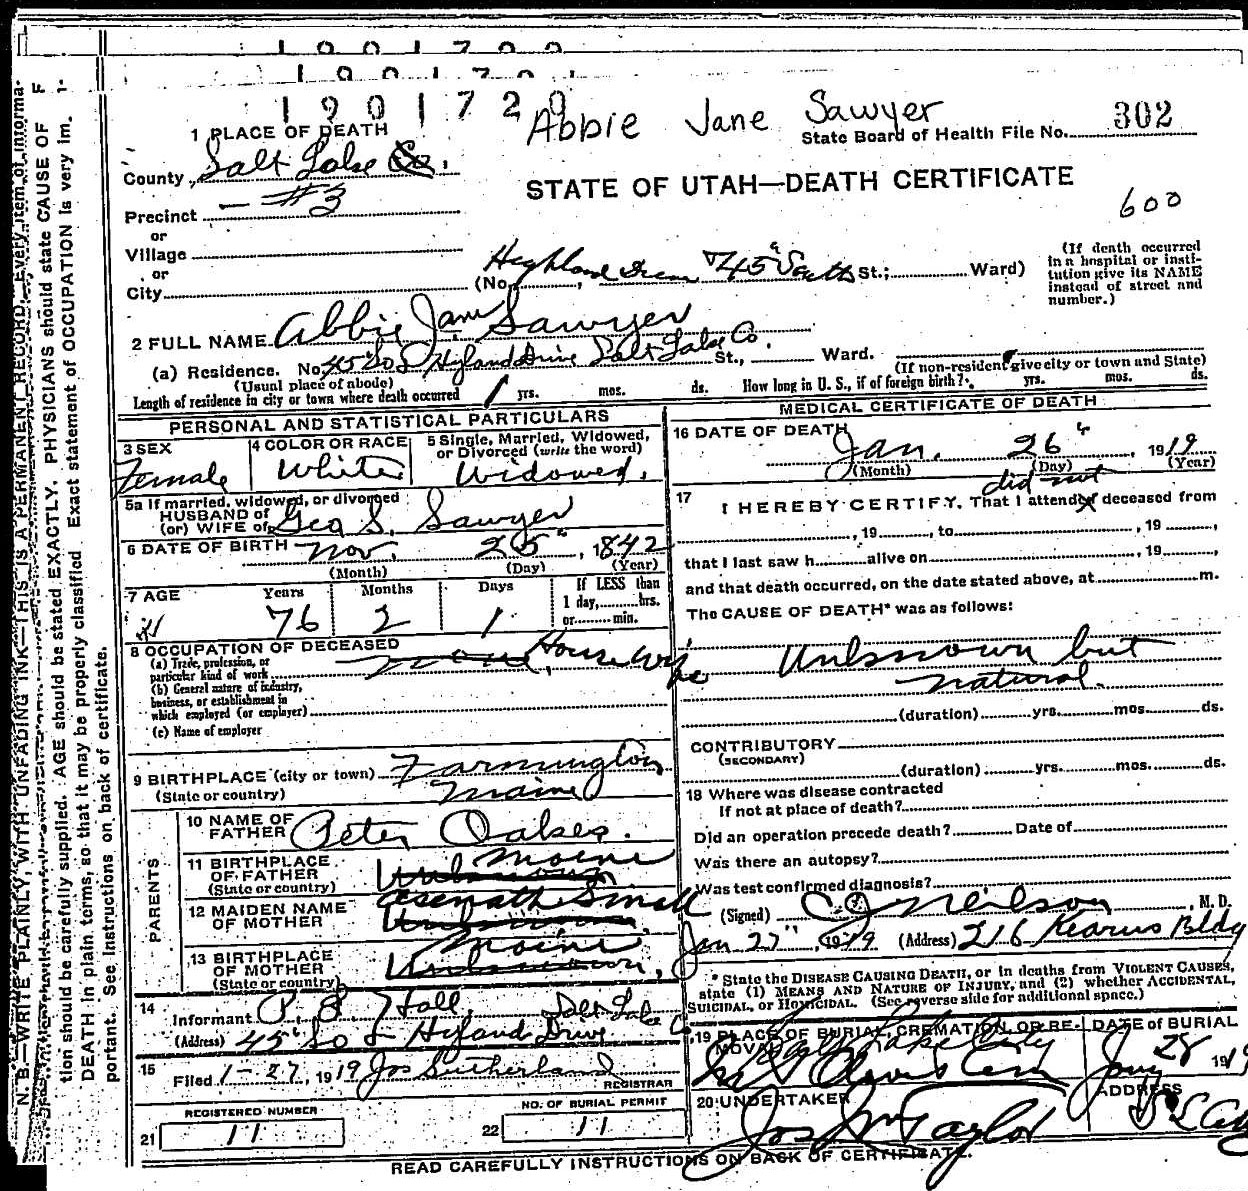 1901720
Abbie Jane Sawyer
State Board of Health File No. 302
1 PLACE OF DEATH
County Salt Lake Co.
STATE OF UTAH—DEATH CERTIFICATE
600
Precinct #3
or
Village
or
City
(No. Highland Drive 45th South St.; Ward)
(If death occurred
in a hospital or insti-
tution give its NAME
instead of street and
number.)
2 FULL NAME Abbie Jane Sawyer
(a) Residence. No. 45 So & Hyland Drive Salt Lake Co. St., Ward.
(Usual place of abode)
(If non-resident give city or town and State)
Length of residence in city or town where death occurred 1 yrs. mos. ds. How long in U. S., if of foreign birth? yrs. mos. ds.
PERSONAL AND STATISTICAL PARTICULARS
3 SEX
Female
4 COLOR OR RACE
White
5 Single, Married, Widowed,
or Divorced (write the word)
Widowed.
5a If married, widowed, or divorced
HUSBAND of
(or) WIFE of Geo S. Sawyer
6 DATE OF BIRTH Nov. 25", 1842
(Month) (Day) (Year)
7 AGE Years Months Days If LESS than
1 day, hrs.
or min.
76 2 1
8 OCCUPATION OF DECEASED
(a) Trade, profession, or
particular kind of work None, Housewife
(b) General nature of industry,
business, or establishment in
which employed (or employer)
(c) Name of employer
9 BIRTHPLACE (city or town) Farmington
(State or country) Maine
PARENTS
10 NAME OF
FATHER Peter Oakes.
11 BIRTHPLACE
OF FATHER
(State or country) Maine
Unknown
12 MAIDEN NAME
OF MOTHER Asenath Small
Unknown.
13 BIRTHPLACE
OF MOTHER
(State or country) Maine
Unknown,
14
Informant P. B. Hall Salt Lake Co
(Address) 45" So & Hyland Drive
15
Filed 1-27, 1919 Jos Sutherland
REGISTRAR
REGISTERED NUMBER
21 11
NO. OF BURIAL PERMIT
22 11
MEDICAL CERTIFICATE OF DEATH
16 DATE OF DEATH
Jan. 26", 1919
(Month) (Day) (Year)
did not
17 I HEREBY CERTIFY, That I attended deceased from
, 19 , to , 19 ,
that I last saw h alive on , 19 ,
and that death occurred, on the date stated above, at m.
The CAUSE OF DEATH* was as follows:
Unknown but
natural.
(duration) yrs. mos. ds.
CONTRIBUTORY
(SECONDARY)
(duration) yrs. mos. ds.
18 Where was disease contracted
If not at place of death?
Did an operation precede death? Date of
Was there an autopsy?
Was test confirmed diagnosis?
(Signed) C J Neilson, M. D.
Jan 27", 1919 (Address) 216 Kearns Bldg
*State the DISEASE CAUSING DEATH, or in deaths from VIOLENT CAUSES,
state (1) MEANS AND NATURE OF INJURY, and (2) whether ACCIDENTAL,
SUICIDAL, or HOMICIDAL. (See reverse side for additional space.)
19 PLACE OF BURIAL, CREMATION, OR RE-
MOVAL Salt Lake City
Mt Olivet Cem
DATE of BURIAL
Jany 28 1919
20 UNDERTAKER
Jos Wm Taylor
ADDRESS
S L City
READ CAREFULLY INSTRUCTIONS ON BACK OF CERTIFICATE.
N. B.—WRITE PLAINLY, WITH UNFADING INK—THIS IS A PERMANENT RECORD. Every item of informa-
tion should be carefully supplied. AGE should be stated EXACTLY. PHYSICIANS should state CAUSE OF
DEATH in plain terms, so that it may be properly classified. Exact statement of OCCUPATION is very im-
portant. See instructions on back of certificate.